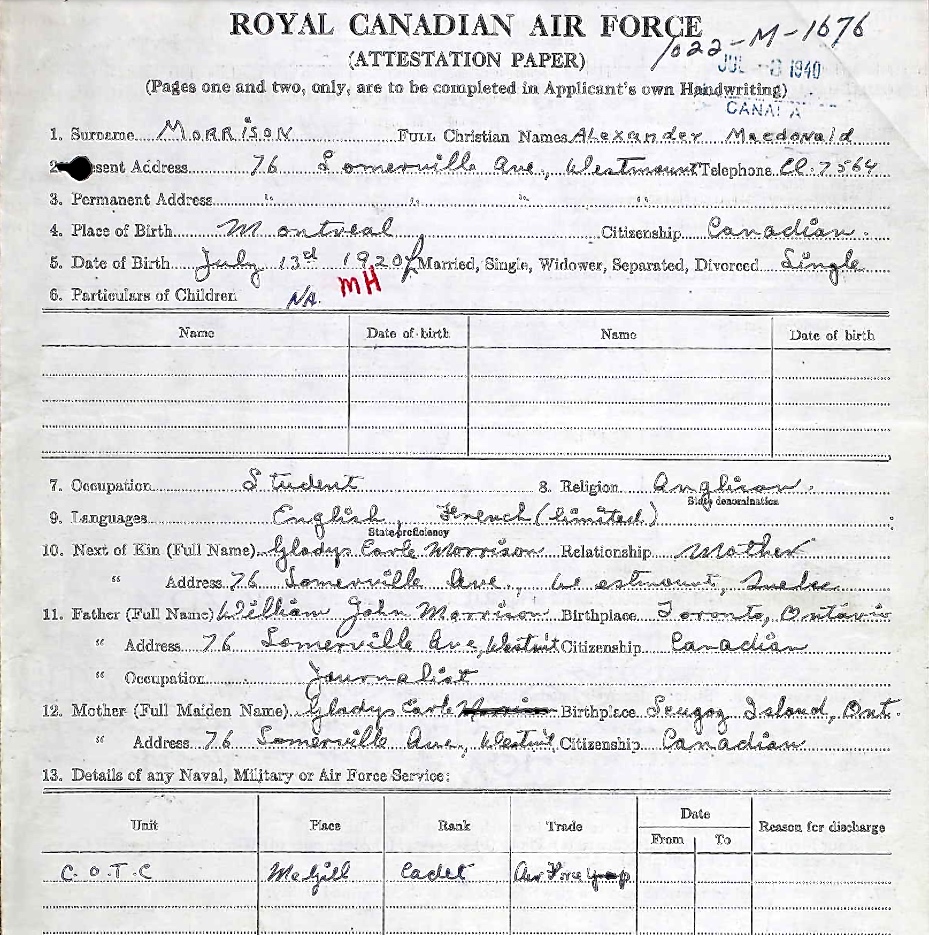 ROYAL CANADIAN AIR FORCE
1022-M-1676
(ATTESTATION PAPER)
JUL 1940
(Pages one and two, only, are to be completed in Applicant's own Handwriting)
CANADA
1. Surname MORRISON FULL Christian Names Alexander Macdonald
2. Present Address 76 Somerville Ave., Westmount Telephone El. 7564
3. Permanent Address " " " "
4. Place of Birth Montreal Citizenship Canadian.
5. Date of Birth July 13th 1920 Married, Single, Widower, Separated, Divorced Single
MH
6. Particulars of Children N.A.
Name Date of birth Name Date of birth
7. Occupation Student 8. Religion Anglican.
State denomination
9. Languages English, French (limited)
State proficiency
10. Next of Kin (Full Name) Gladys Earle Morrison Relationship Mother
" Address 76 Somerville Ave., Westmount, Quebec
11. Father (Full Name) William John Morrison Birthplace Toronto, Ontario
" Address 76 Somerville Ave, Westmt Citizenship Canadian
" Occupation Journalist
12. Mother (Full Maiden Name) Gladys Earle Birthplace Scugog Island, Ont.
" Address 76 Somerville Ave., Westmt Citizenship Canadian
13. Details of any Naval, Military or Air Force Service:
Unit Place Rank Trade Date Reason for discharge
From To
C.O.T.C McGill Cadet Air Force